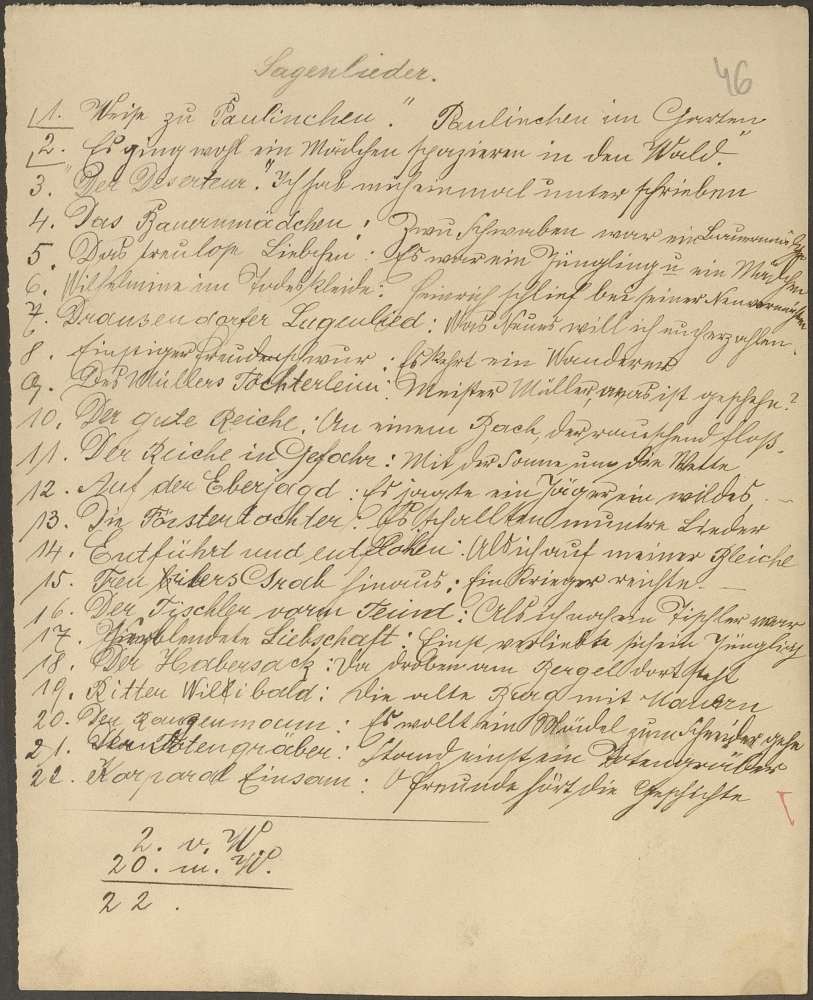 Sagenlieder.
46
1. Weise zu Paulinchen." Paulinchen im Garten
2. Es ging wohl ein Mädchen spazieren in den Wald."
3. "Der Deserteur." Ich hab mich einmal unterschrieben
4. Das Bauernmädchen: Zwu Schwaben war ein Bauernmädchen
5. Das treulose Liebchen: Es war ein Jüngling u ein Mädchen
6. Wilhelmine im Todeskleide: Heinrich schlief bei seiner Neuvermählten
7. Drausendorfer Lugenlied: Was Neues will ich euch erzahlen.
8. Einstiger: Es kehrt ein Wanderer
9. Des Müllers Töchterlein: Meister Müller, was ist geschehn?
10. Der gute Reiche: An einem Bach, der rauschend floß.
11. Der Reiche in Gefahr: Mit der Sonne um die Wette
12. Auf der Eberjagd: Es jagte ein Jäger ein wildes. —
13. Die Försterstochter: Es schallten muntre Lieder
14. Entführt und entflohen: Als ich auf meiner Bleiche
15. Treu übers Grab hinaus: Ein Krieger reichte. —
16. Der Tischler vorm Feind: Als ich noch ein Tischler war
17. Verblendete Liebschaft: Einst verliebte sich ein Jüngling
18. Der Habersack: Da droben am Bergel dort steht
19. Ritter Willibald: Die alte Burg mit Mauern
20. Der: Es wollt ein Mäudel zum Schneider gehe
21. Der Totengräber: Stand einst ein Totengräber
22. Korporal Einsam: O Freunde hört die Geschichte
2. v. W.
20. m. W.
22.